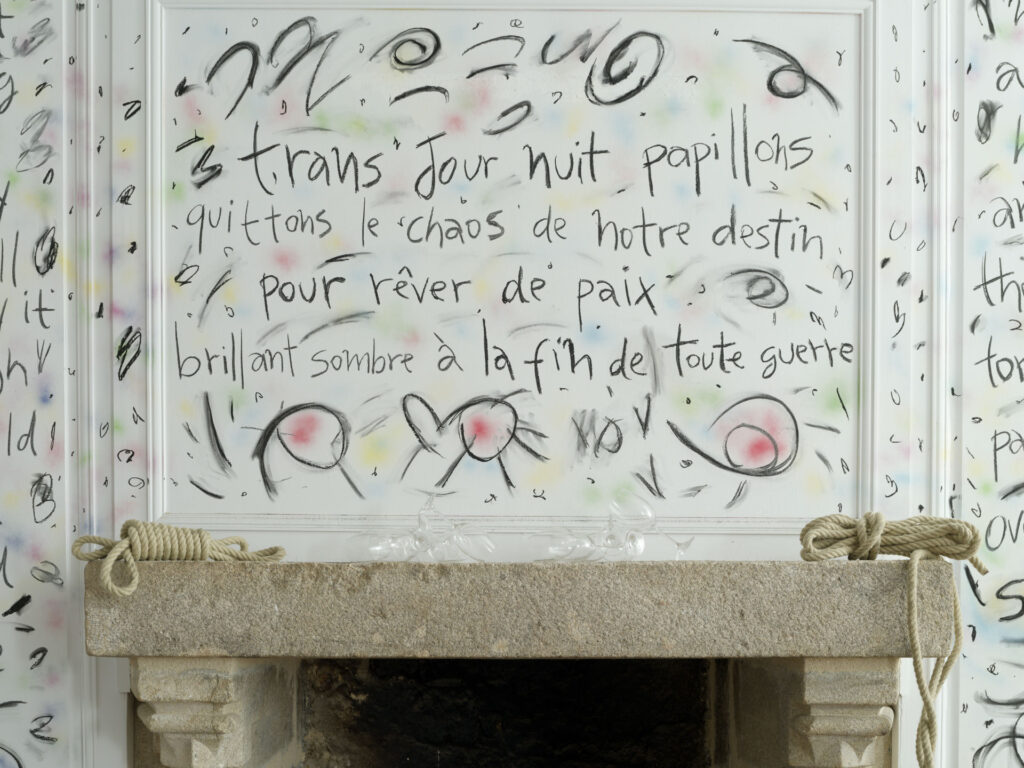 trans jour nuit papillons
quittons le chaos de notre destin
pour rêver de paix
brillant sombre à la fin de toute guerre